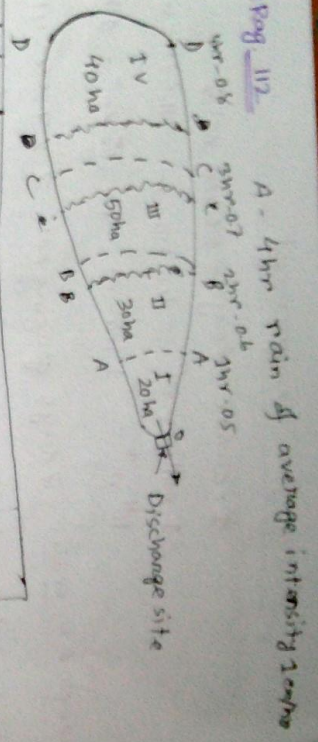 Pag 112
A - 4hr rain of average intensity 1 cm/hr
4hr-0.8
3hr-0.7
2hr-0.6
1hr-0.5
D
C
B
A
IV
40ha
III
50ha
II
30ha
I
20ha
D
C
B
B
A
Discharge site